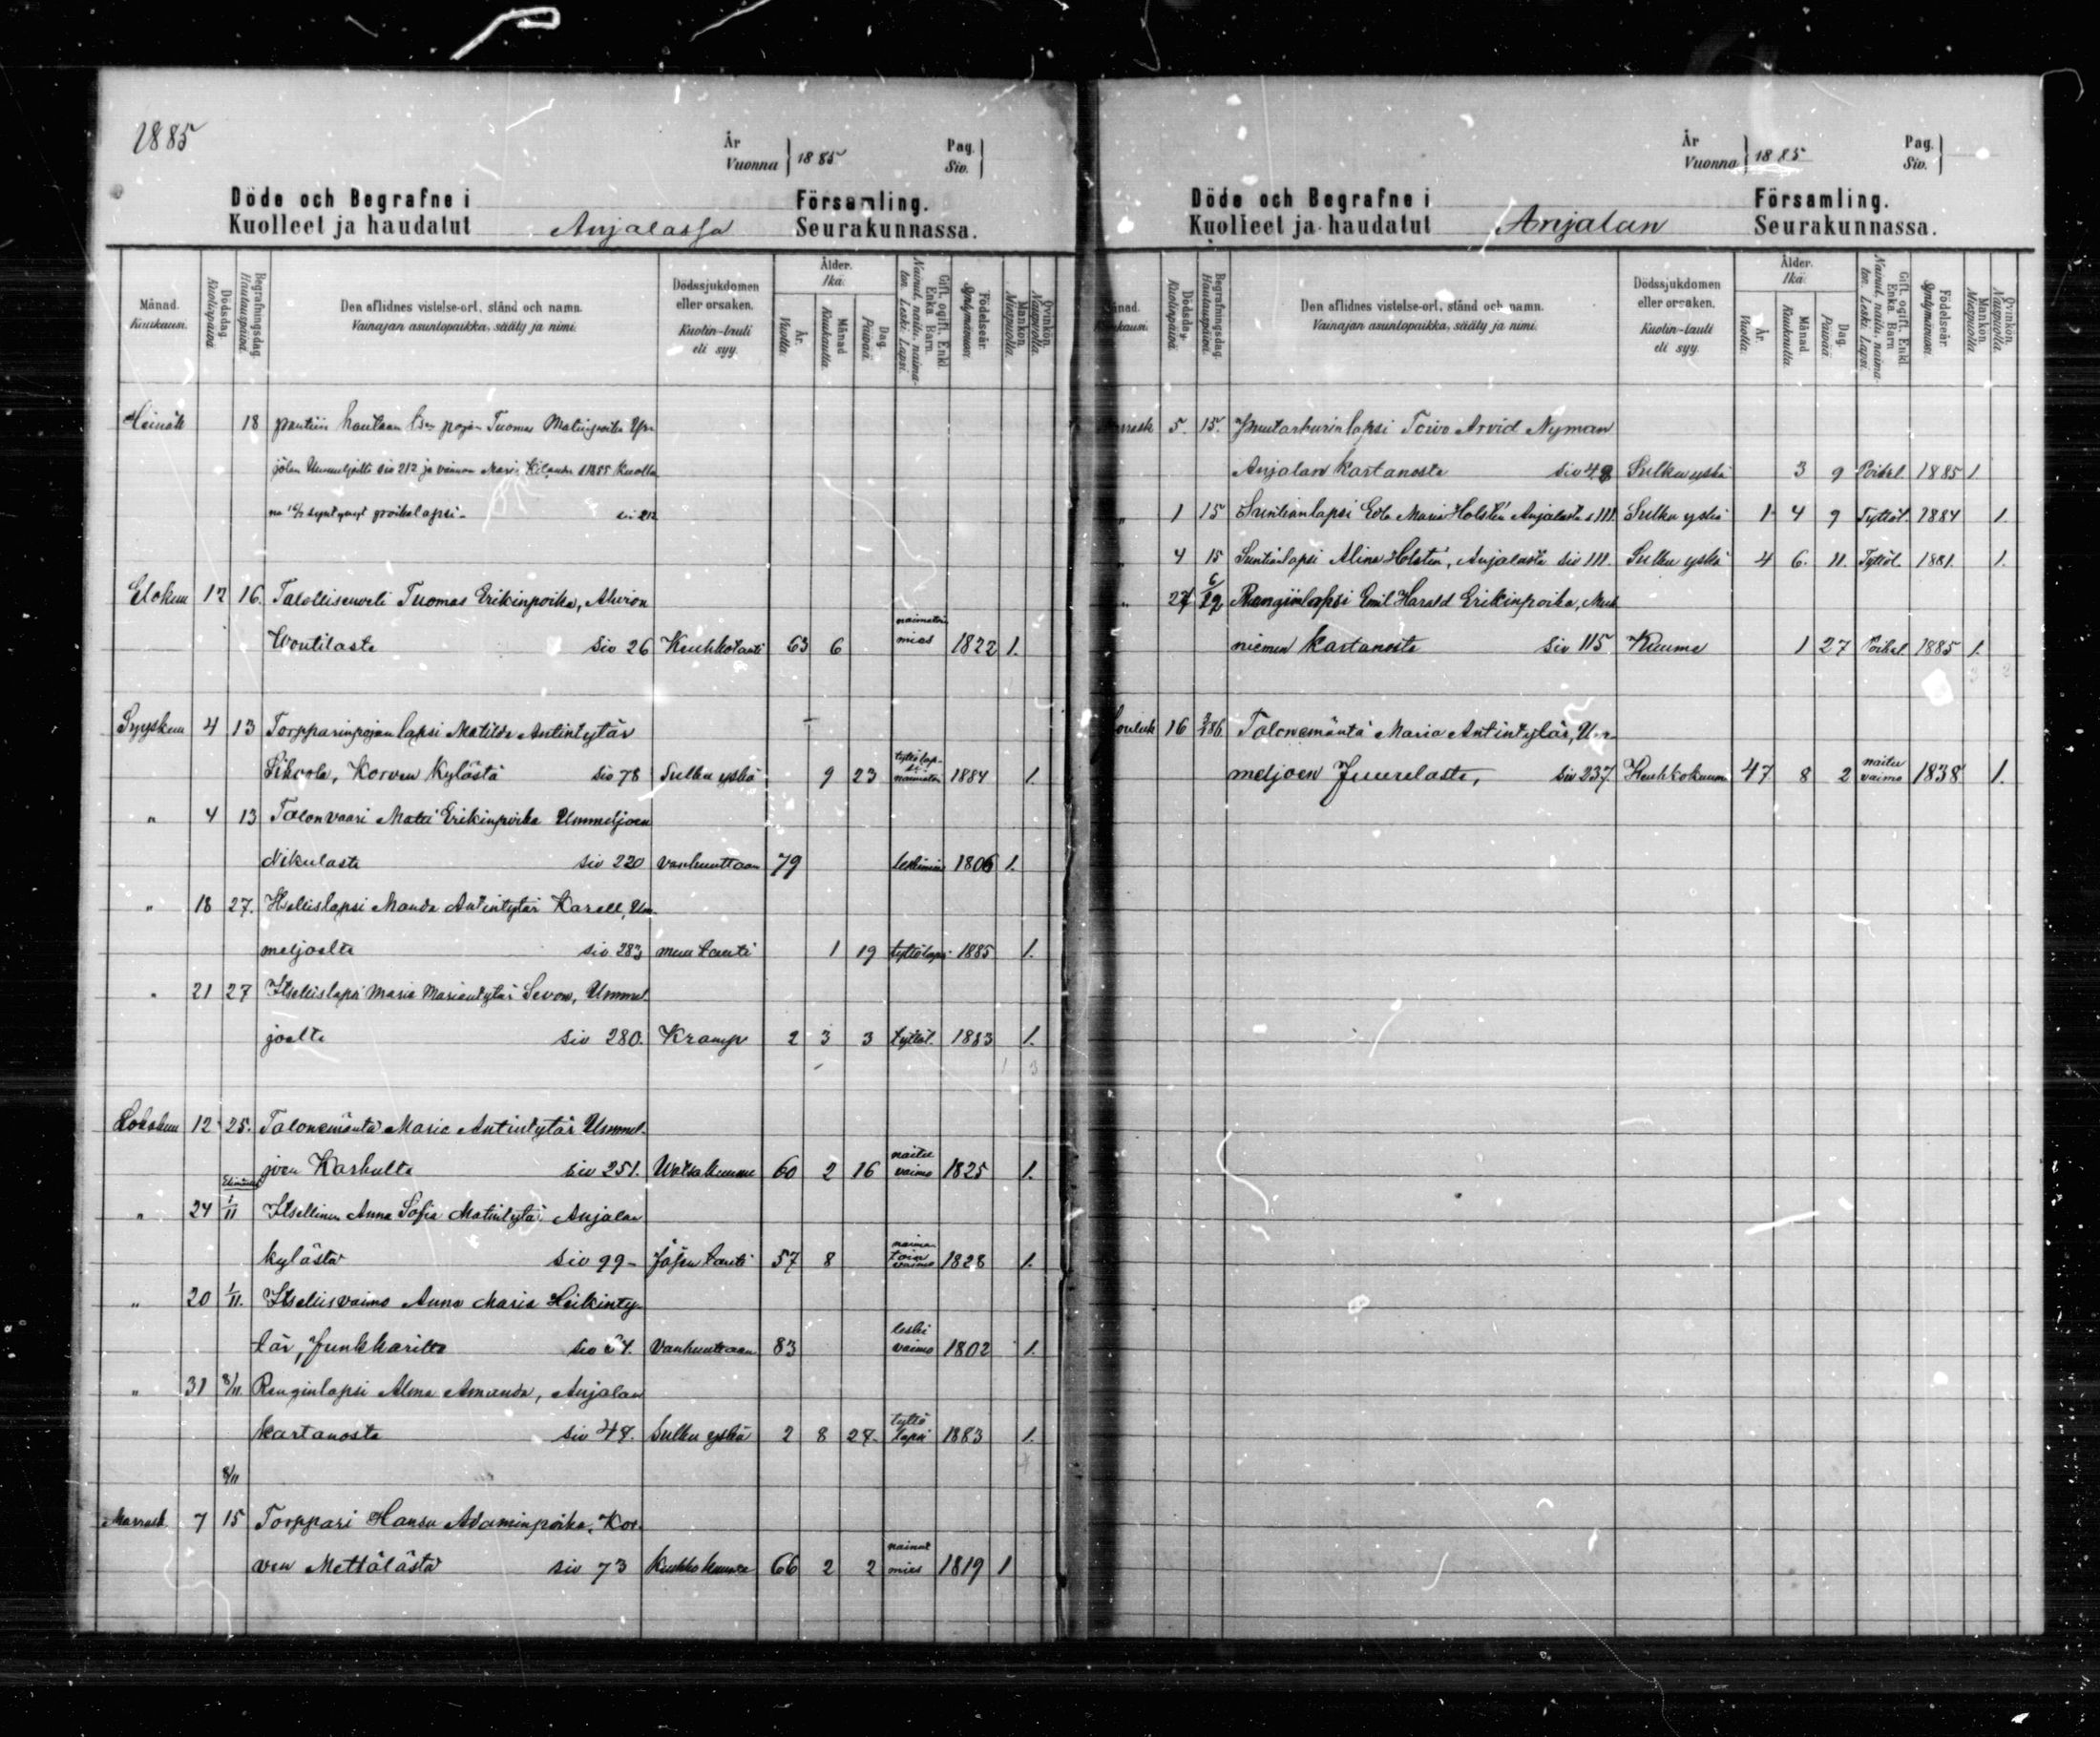 1885
År
Vuonna 1885
Pag.
Siv.
Döde och Begrafne i Församling.
Kuolleet ja haudatut Anjalassa Seurakunnassa.
Månad. Kuukausi.
Dödsdag. Kuolinpäivä.
Begrafningsdag. Hautauspäivä.
Den aflidnes vistelse-ort, stånd och namn.
Vainajan asuntopaikka, sääty ja nimi.
Dödssjukdomen eller orsaken.
Kuolin-tauti eli syy.
Ålder. Ikä.
År. Vuotta.
Månad Kuukautta.
Dag. Päivää.
Gift, ogift. Enkl. Enka. Barn.
Nainut, naitu, naimaton. Leski. Lapsi.
Födelseår. Syntymävuosi.
Mankön. Miespuolia.
Qvinkön. Naispuolia.
Heinäk 18 pantiin hautaan Tuomas Matinpoika
siv 212 ja vaimon Maria 1885
syntynyt poikalapsi siv 212
Elokuu 12 16. Talollisenveli Tuomas Erikinpoika, Ahvion
Wontilasta siv 26 Keuhkotauti 63 6 naimaton mies 1822 1.
Syyskuu 4 13 Torpparinpojan lapsi Matilda Antintytär
Sihvola, Korven kylästä siv 78 Sulku yskä 9 23 tyttölapsi naimaton 1884 1.
" 4 13 Talonvaari Matti Erikinpoika Ummeljoen
Nikulasta siv 220 vanhuuttaan 79 leskimies 1806 1.
" 18 27. Itsellislapsi Manda Antintytär Karell, Um-
meljoelta siv 283 muu tauti 1 19 tyttölapsi 1885 1.
" 21 27 Itsellislapsi Maria Mariantytär Sevon, Ummel
joelta siv 280. Kramp 2 3 3 tyttöl. 1883 1.
1 3
Lokakuu 12 25. Talonemäntä Maria Antintytär Ummel-
joen Karhulta siv 251. Watsakuume 60 2 16 naitu vaimo 1825 1.
" 24 1/11 Itsellinen Anna Sofia Matintytär Anjalan
kylästä siv 99 tauti 57 8 naimatoin vaimo 1828 1.
" 20 1/11. Itsellisvaimo Anna Maria Heikinty-
tär, Junkkarilta siv vanhuuttaan 83 leski vaimo 1802 1.
" 31 8/11. Renginlapsi Alma Amanda, Anjalan
kartanosta siv 48. Sulku yskä 2 8 28. tyttö lapsi 1883 1.
8/11 4
Marrask 7 15 Torppari Hansu Adaminpoika, Kor-
ven Mettälästä siv 73 Keuhkokuume 66 2 2 nainut mies 1819 1
År
Vuonna 1885
Pag.
Siv.
Döde och Begrafne i Församling.
Kuolleet ja haudatut Anjalan Seurakunnassa.
Månad. Kuukausi.
Dödsdag. Kuolinpäivä.
Begrafningsdag. Hautauspäivä.
Den aflidnes vistelse-ort, stånd och namn.
Vainajan asuntopaikka, sääty ja nimi.
Dödssjukdomen eller orsaken.
Kuolin-tauti eli syy.
Ålder. Ikä.
År. Vuotta.
Månad. Kuukautta.
Dag. Päivää.
Gift, ogift. Enkl. Enka. Barn
Nainut, naitu, naimaton. Leski. Lapsi.
Födelseår. Syntymävuosi.
Mankön. Miespuolia
Qvinkön. Naispuolia.
Marrask 5. 15. Puutarhurin lapsi Toivo Arvid Nyman
Anjalan kartanosta siv 48 Sulku yskä 3 9 Poikal. 1885 1.
" 1 15 Suntianlapsi Edla Maria Holstén Anjalasta s 111 Sulku yskä 1 4 9 Tyttöl. 1884 1.
" 4 15 Suntianlapsi Alina Holstén, Anjalasta siv 111. Sulku yskä 4 6. 11. Tyttöl. 1881. 1.
" 27 6/12 Renginlapsi Emil Harald Erikinpoika, Muh-
niemen kartanosta siv 115 Kuume 1 27 Poikal 1885 1.
3 2
Jouluk 16 3/1 86 Talonemäntä Maria Antintytär, Um-
meljoen Junrelasta, siv 237. Keuhkokuume 47 8 2 naitu vaimo 1838 1.